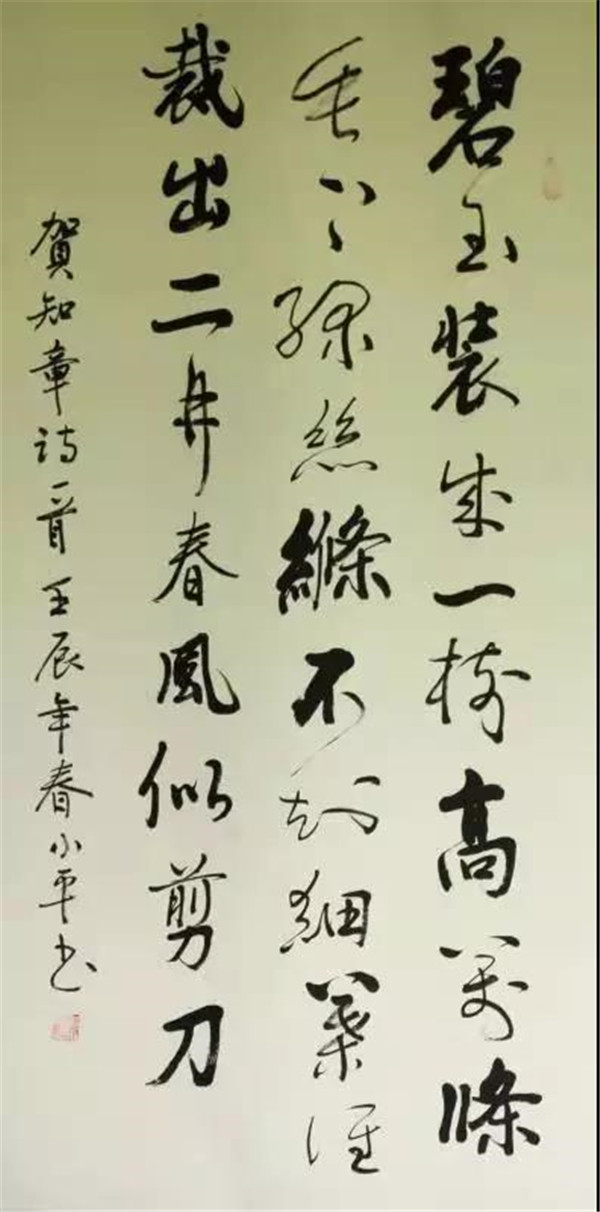 碧玉装成一樹高萬條
垂下綠絲縧不知細葉誰
裁出二月春風似剪刀
賀知章詩一首壬辰年春小平书